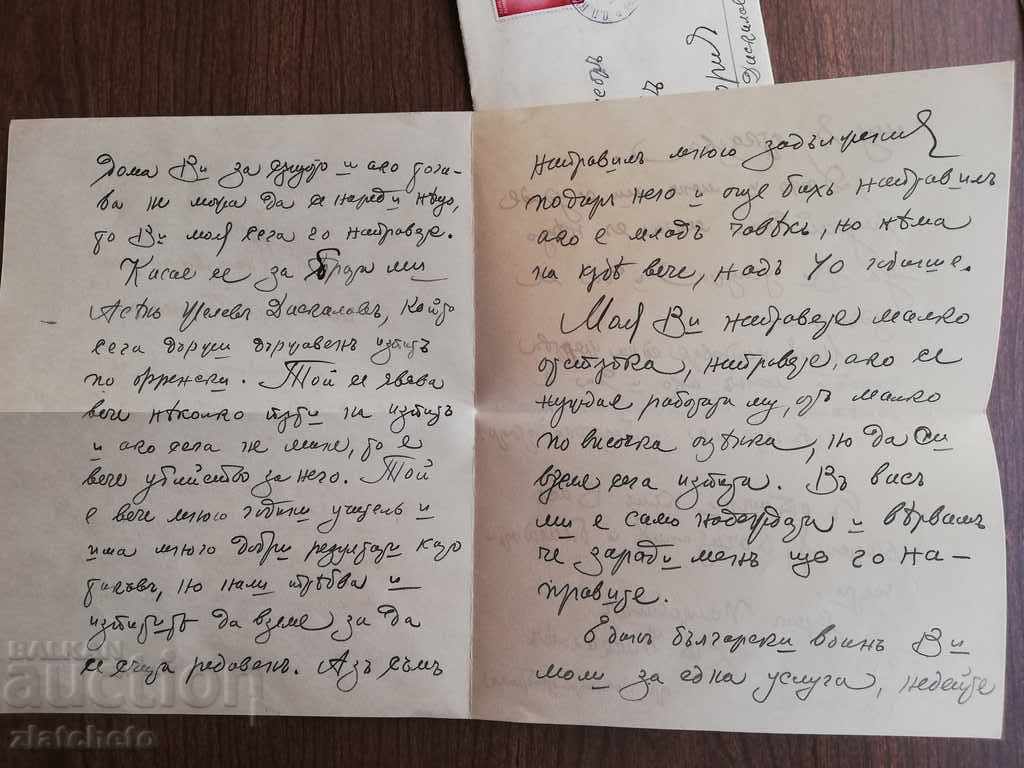 дома Ви за същото и ако тога-
ва не може да се нареди нѣщо,
то Ви моля сега го направете.
Касае се за брата ми
Асѣнъ Даскаловъ, който
сега държи държавенъ изпитъ
по френски. Той се явява
вече нѣколко пѫти на изпитъ
и ако сега не мине, то е
вече убийство за него. Той
е вече много години учитель и
има много добри резултати като
такъвъ, но нали трѣбва и
изпитътъ да вземе за да
се счита редовенъ. Азъ съмъ
направилъ много задължения
подиръ него и още бихъ направилъ
ако е младъ човѣкъ, но нѣма
на кѫдѣ вече, надъ 40 е.
Моля Ви направете малко
отстѫпка, направете, ако се
нуждае работата му, отъ малко
по висока оцѣнка, но да си
вземе сега изпита. Въ васъ
ми е само надеждата и вѣрвамъ
че заради менъ ще го на-
правите.
Единъ български воинъ Ви
моли за една услуга, недейте
BALKAN
auction
zlatcheto